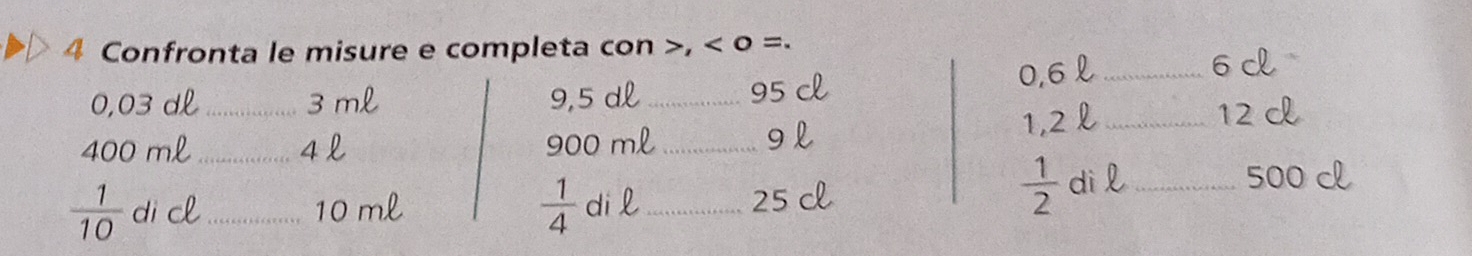 4 Confronta le misure e completa con >, < o =.
0,03 dl ............ 3 ml
400 ml ............ 4 l
1/10 di cl ............ 10 ml
9,5 dl ............ 95 cl
900 ml ............ 9 l
1/4 di l ............ 25 cl
0,6 l ............ 6 cl
1,2 l ............ 12 cl
1/2 di l ............ 500 cl